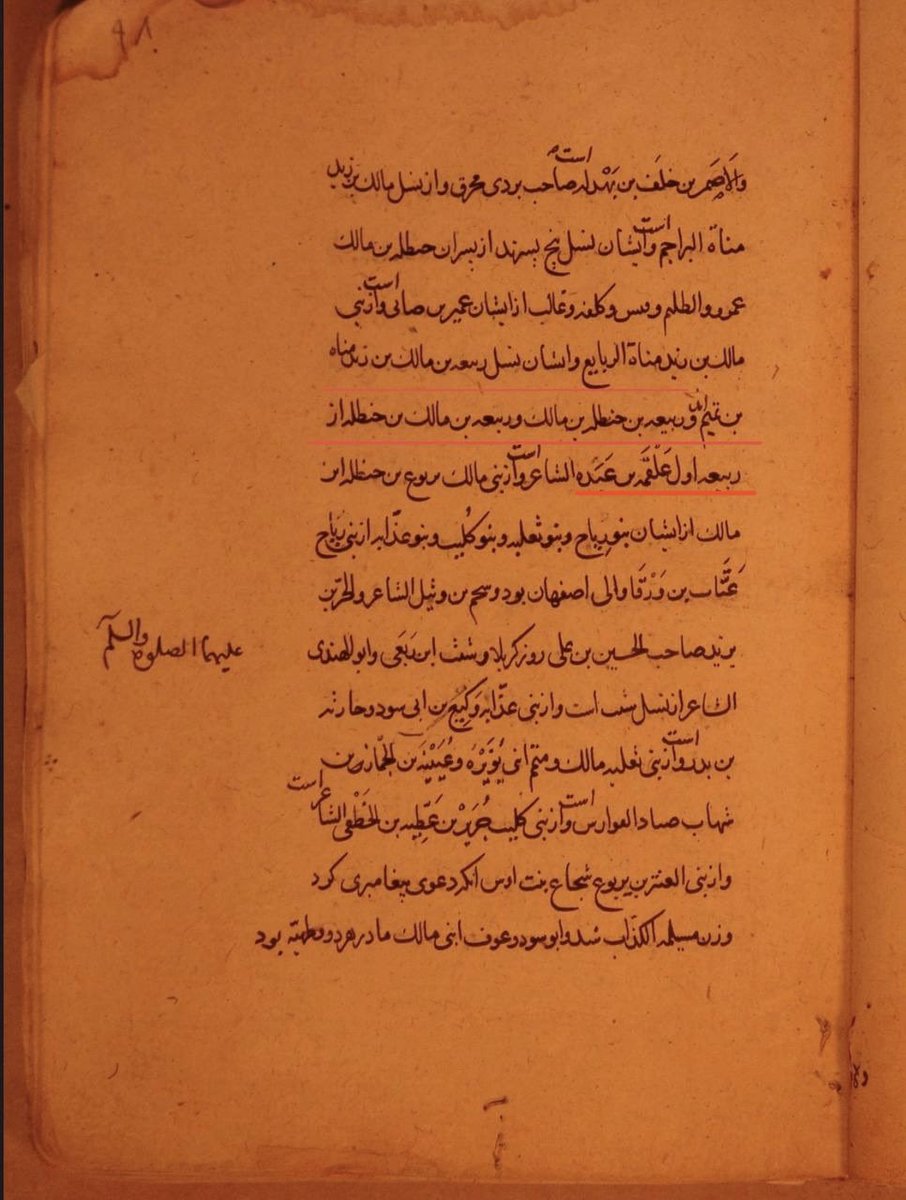 ۹۸
والاصم بن خلف بن بهدله صاحب بردی محرق است واز نسل مالک بن زید
مناة البراجم است وایشان نسل پنج پسرند از پسران حنظله بن مالک
عمرو والظلیم وقیس وکلفه وغالب از ایشان عمیر بن ضابی است واز بنی
مالک بن زید مناة الربایع وایشان نسل ربیعه بن مالک بن زید مناه
بن تمیم اند وربیعه بن حنظله بن مالک وربیعه بن مالک بن حنظله از
ربیعه اول علقمه بن عبده الشاعر است واز بنی مالک یربوع بن حنظله ابن
مالک از ایشان بنو ریاح وبنو ثعلبه وبنو کلیب وبنو غدانه از بنی ریاح
عتاب بن ورقا والی اصفهان بود وسحیم بن وثیل الشاعر والحر بن
یزید صاحب الحسین بن علی روز کربلا وشبث ابن ربعی وابو الهندی
علیهما الصلوة والسلم
الشاعر از نسل شبث است واز بنی غدانه وکیع بن ابی سود وحارثه
بن بدر است واز بنی ثعلبه مالک ومتمم ابنی نویره وعیینه بن
شهاب صیاد الفوارس است واز بنی کلیب جریر بن عطیه بن الخطفی الشاعر است
واز بنی العنبر بن یربوع شجاع بنت اوس انکه دعوی پیغامبری کرد
وزن مسیلمه الکذاب شد وابو سود وعوف ابنی مالک مادر هر دو بود